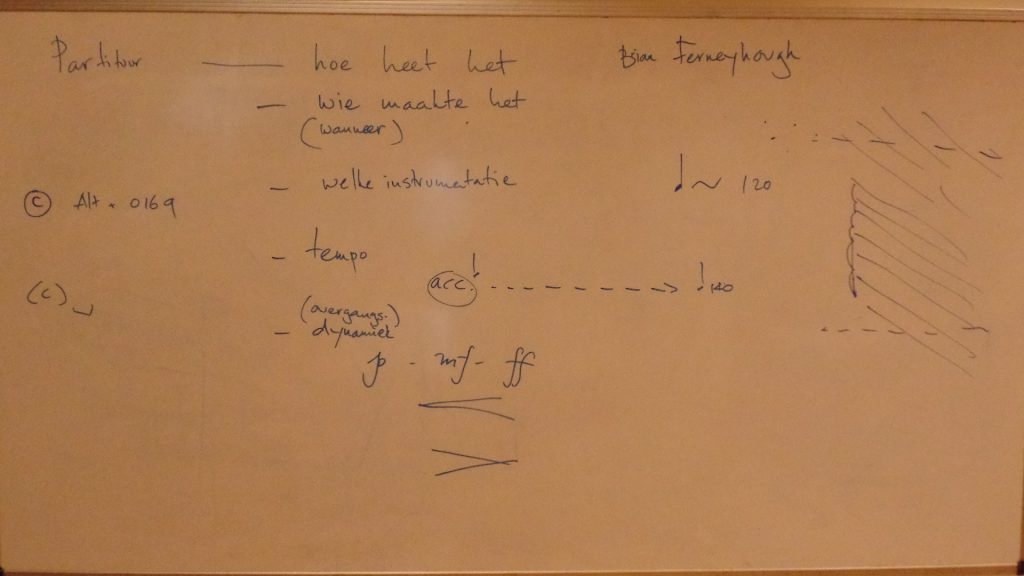 Partituur — hoe heet het
Brian Ferneyhough
— wie maakte het
(wanneer)
— welke instrumentatie
♩ ~ 120
© Alt + 0169
— tempo
acc. ♩ - - - - - > ♩ 140
(c)␣
(overgangs.)
— dynamiek
p - mf - ff